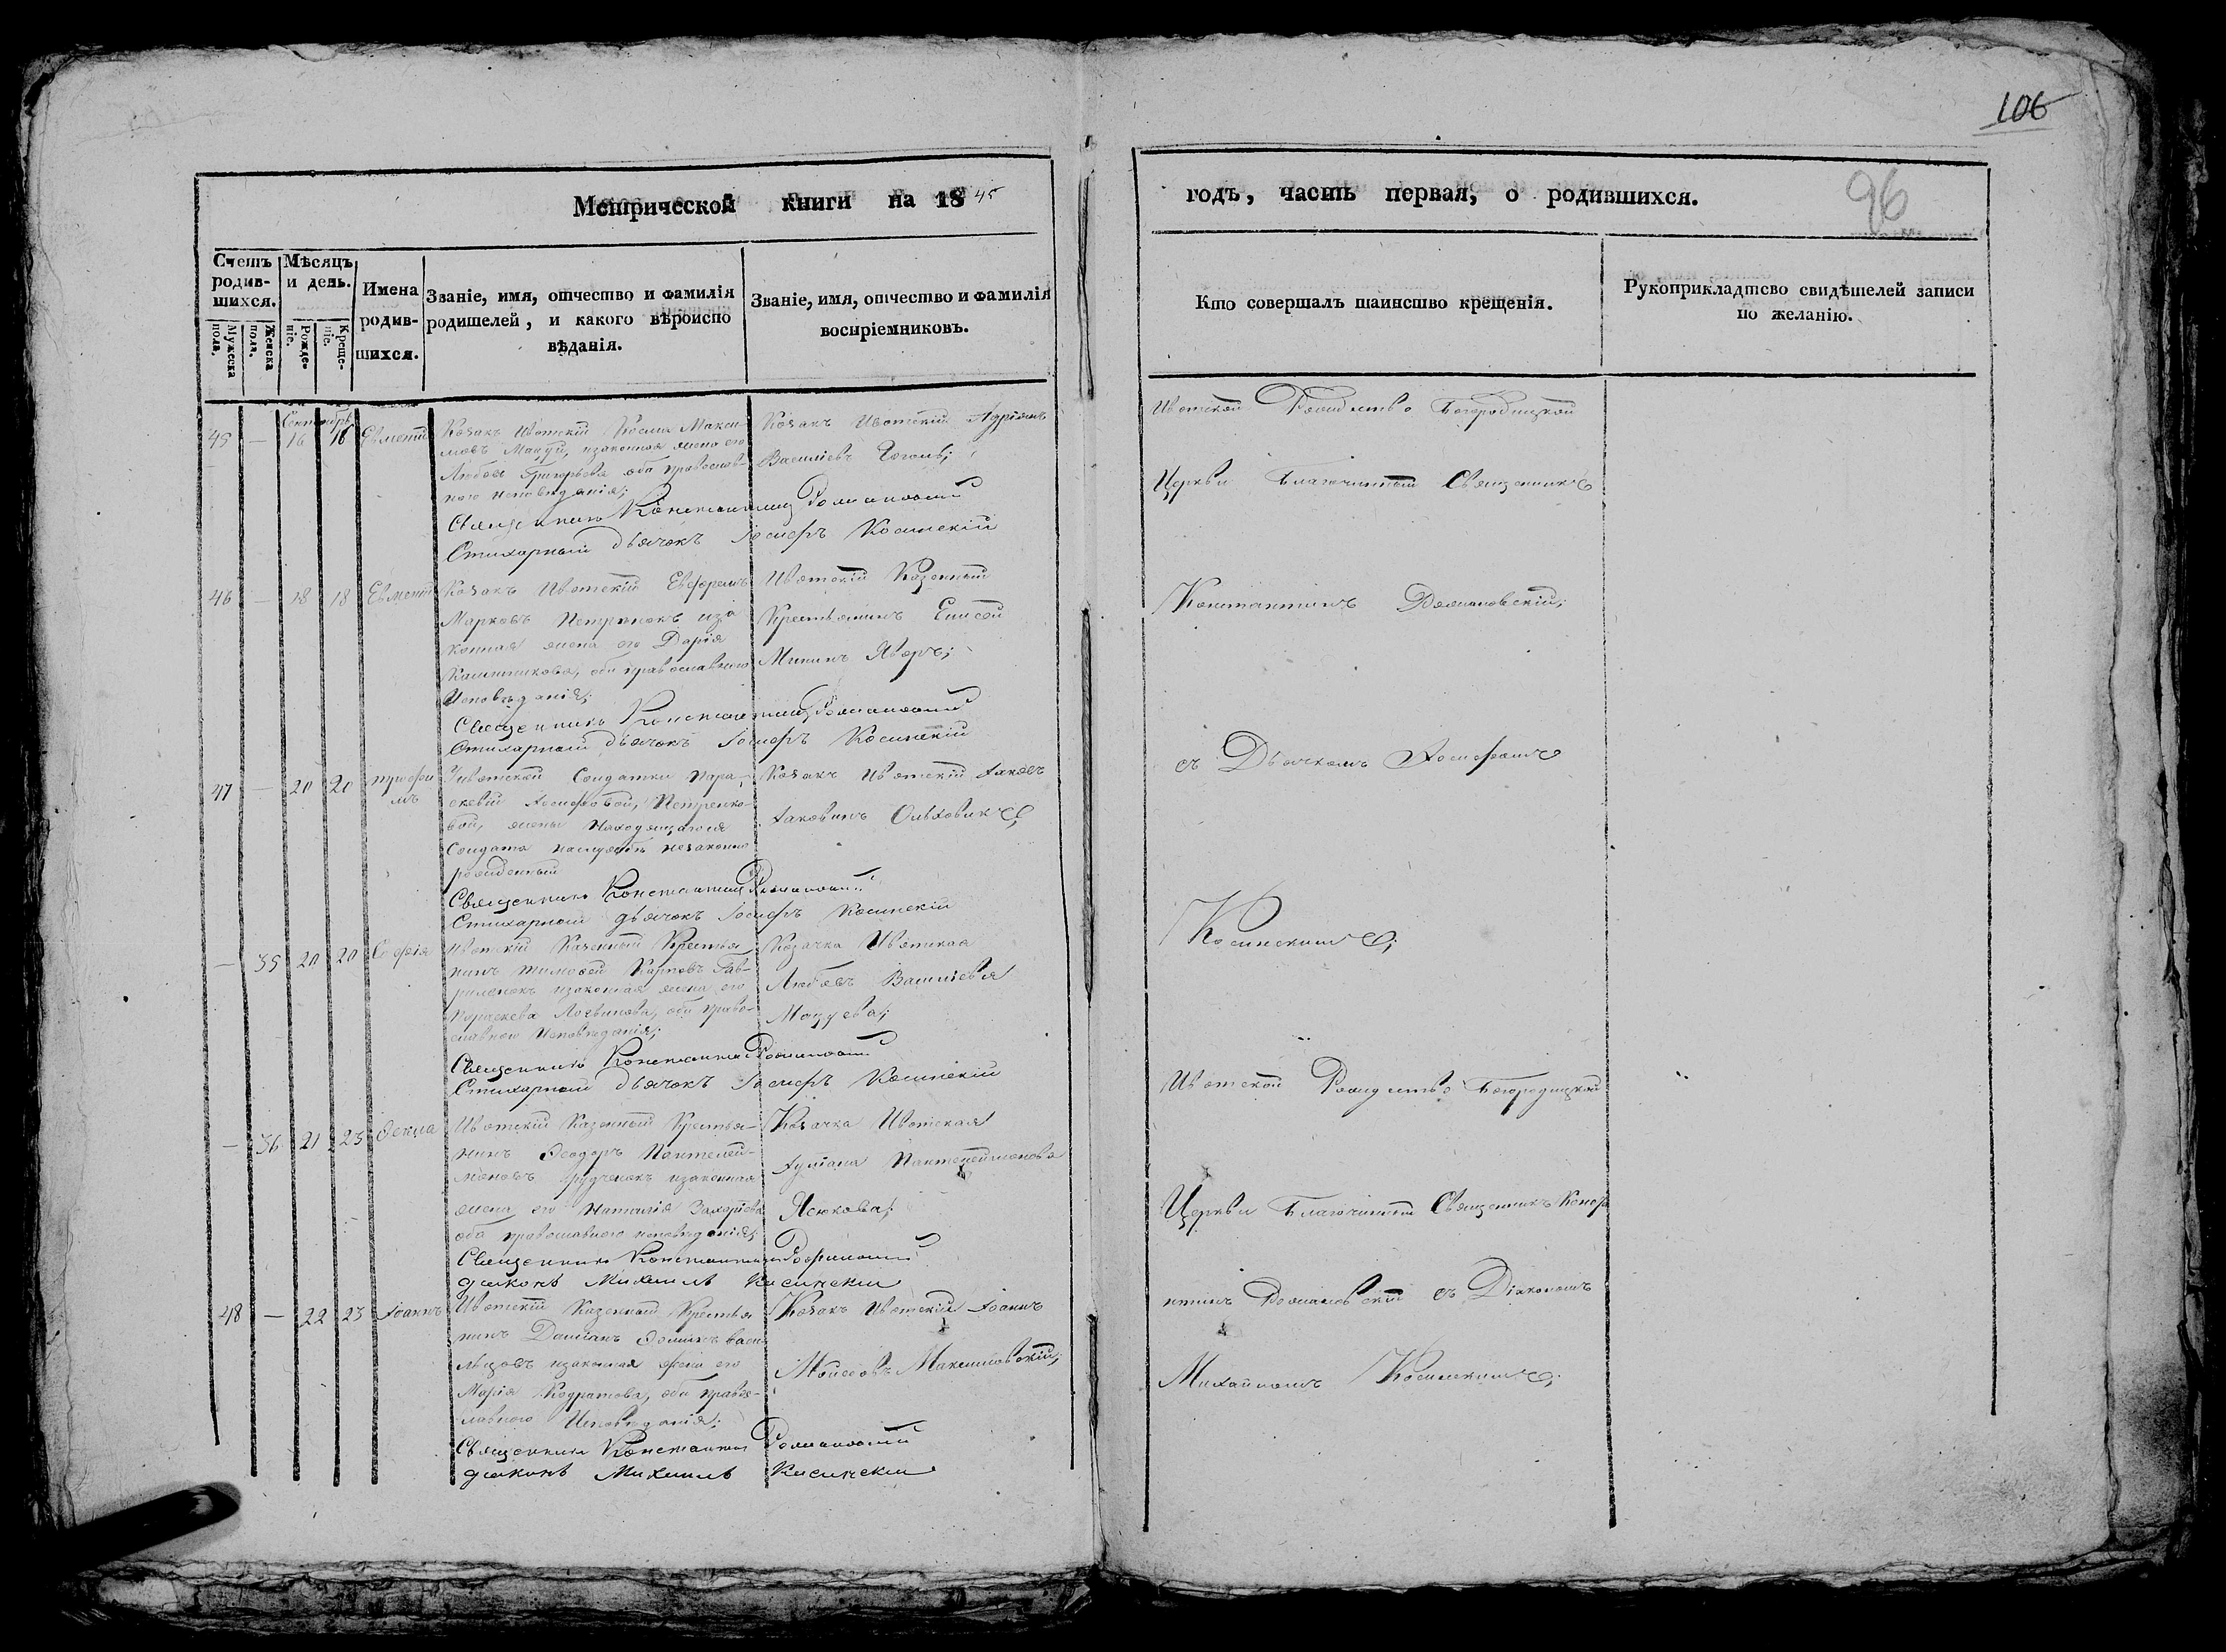 106
96
Метрической книги на 1845
годъ, часть первая, о родившихся.
Счетъ родив-шихся.
Мужеска пола.
Женска пола.
Мѣсяцъ и день.
Рожде-ніе.
Креще-ніе.
Имена
родив-
шихся.
Званіе, имя, отчество и фамилія
родителей, и какого вѣроиспо
вѣданія.
Званіе, имя, отчество и фамилія
воспріемниковъ.
Кто совершалъ таинство крещенія.
Рукоприкладтсво свидѣтелей записи
по желанію.
Сентябрь
45 — 16 16 Евменій
Козакъ Ивотскій Косма Макси-
мовъ Мацуй, изаконная жена его
Любовь Григорьева оба православ-
ного исповѣданія;
Козакъ Ивотскій Адріанъ
Василіевъ Гоголь;
Священникъ Константинъ Романовскій
Стихарный дьячокъ Іосифъ Косинскій
46 — 18 18 Евменій
Козакъ Ивотскій Евфремъ
Марковъ Петренокъ иза
конная жена его Дарія
оби православного
Исповѣданія;
Ивотскій Казенный
Крестьянинъ Елисей
Мининъ Яворъ;
Священникъ Константинъ Романовскій
Стихарный дьячокъ Іосифъ Косинскій
47 — 20 20 Трофи
мъ
Ивотской Солдатки Пара-
скевіи Іосифовой, Петренко-
вой, жены Находящагося
Солдата наслужбѣ незаконно
рожденный
Козакъ Ивотскій Іаковъ
Іаковинъ Ольховикъ;
Священникъ Константинъ Романовскій
Стихарный дьячокъ Іосифъ Косинскій
— 35 20 20 Софія
Ивотскій Казенный Крестья
нинъ Тимофей Карповъ Гав-
риленокъ изаконная жена его
Параскева Логвинова, оби право-
славного Исповѣданія;
Козачка Ивотская
Любовь Василіева
Мацуева;
Священникъ Константинъ Романовскій
Стихарный дьячокъ Іосифъ Косинскій
— 36 21 23 Ѳекла
Ивотскій Казенный Крестья-
нинъ Ѳеодоръ Пантелей-
моновъ изаконная
жена его Наталія Захаріева
оба православного исповѣданія;
Козачка Ивотская
Іуліана Пантелеймонова
Ясюкова;
Священникъ Константинъ Романовскій
дьяконъ Михаилъ Косинскій
48 — 22 23 Іоаннъ
Ивотскій Казенный Крестья
нинъ Даміанъ Ѳоминъ
изаконная жена его
Марія Кодратова, оби право-
славного Исповѣданія;
Козакъ Ивотскій Іоаннъ
Моисеовъ Максимовскій;
Священникъ Константинъ Романовскій
дьяконъ Михаилъ Косинскій
Ивотской Рождество Богородицкой
Церкви Благочинный Священникъ
Константинъ Романовскій;
съ Дьячкомъ Іосифомъ
Косинскимъ;
Ивотской Рождество Богородицкой
Церкви Благочинный Священникъ Конста
нтинъ Романовскій съ Діакономъ
Михаиломъ Косинскимъ;